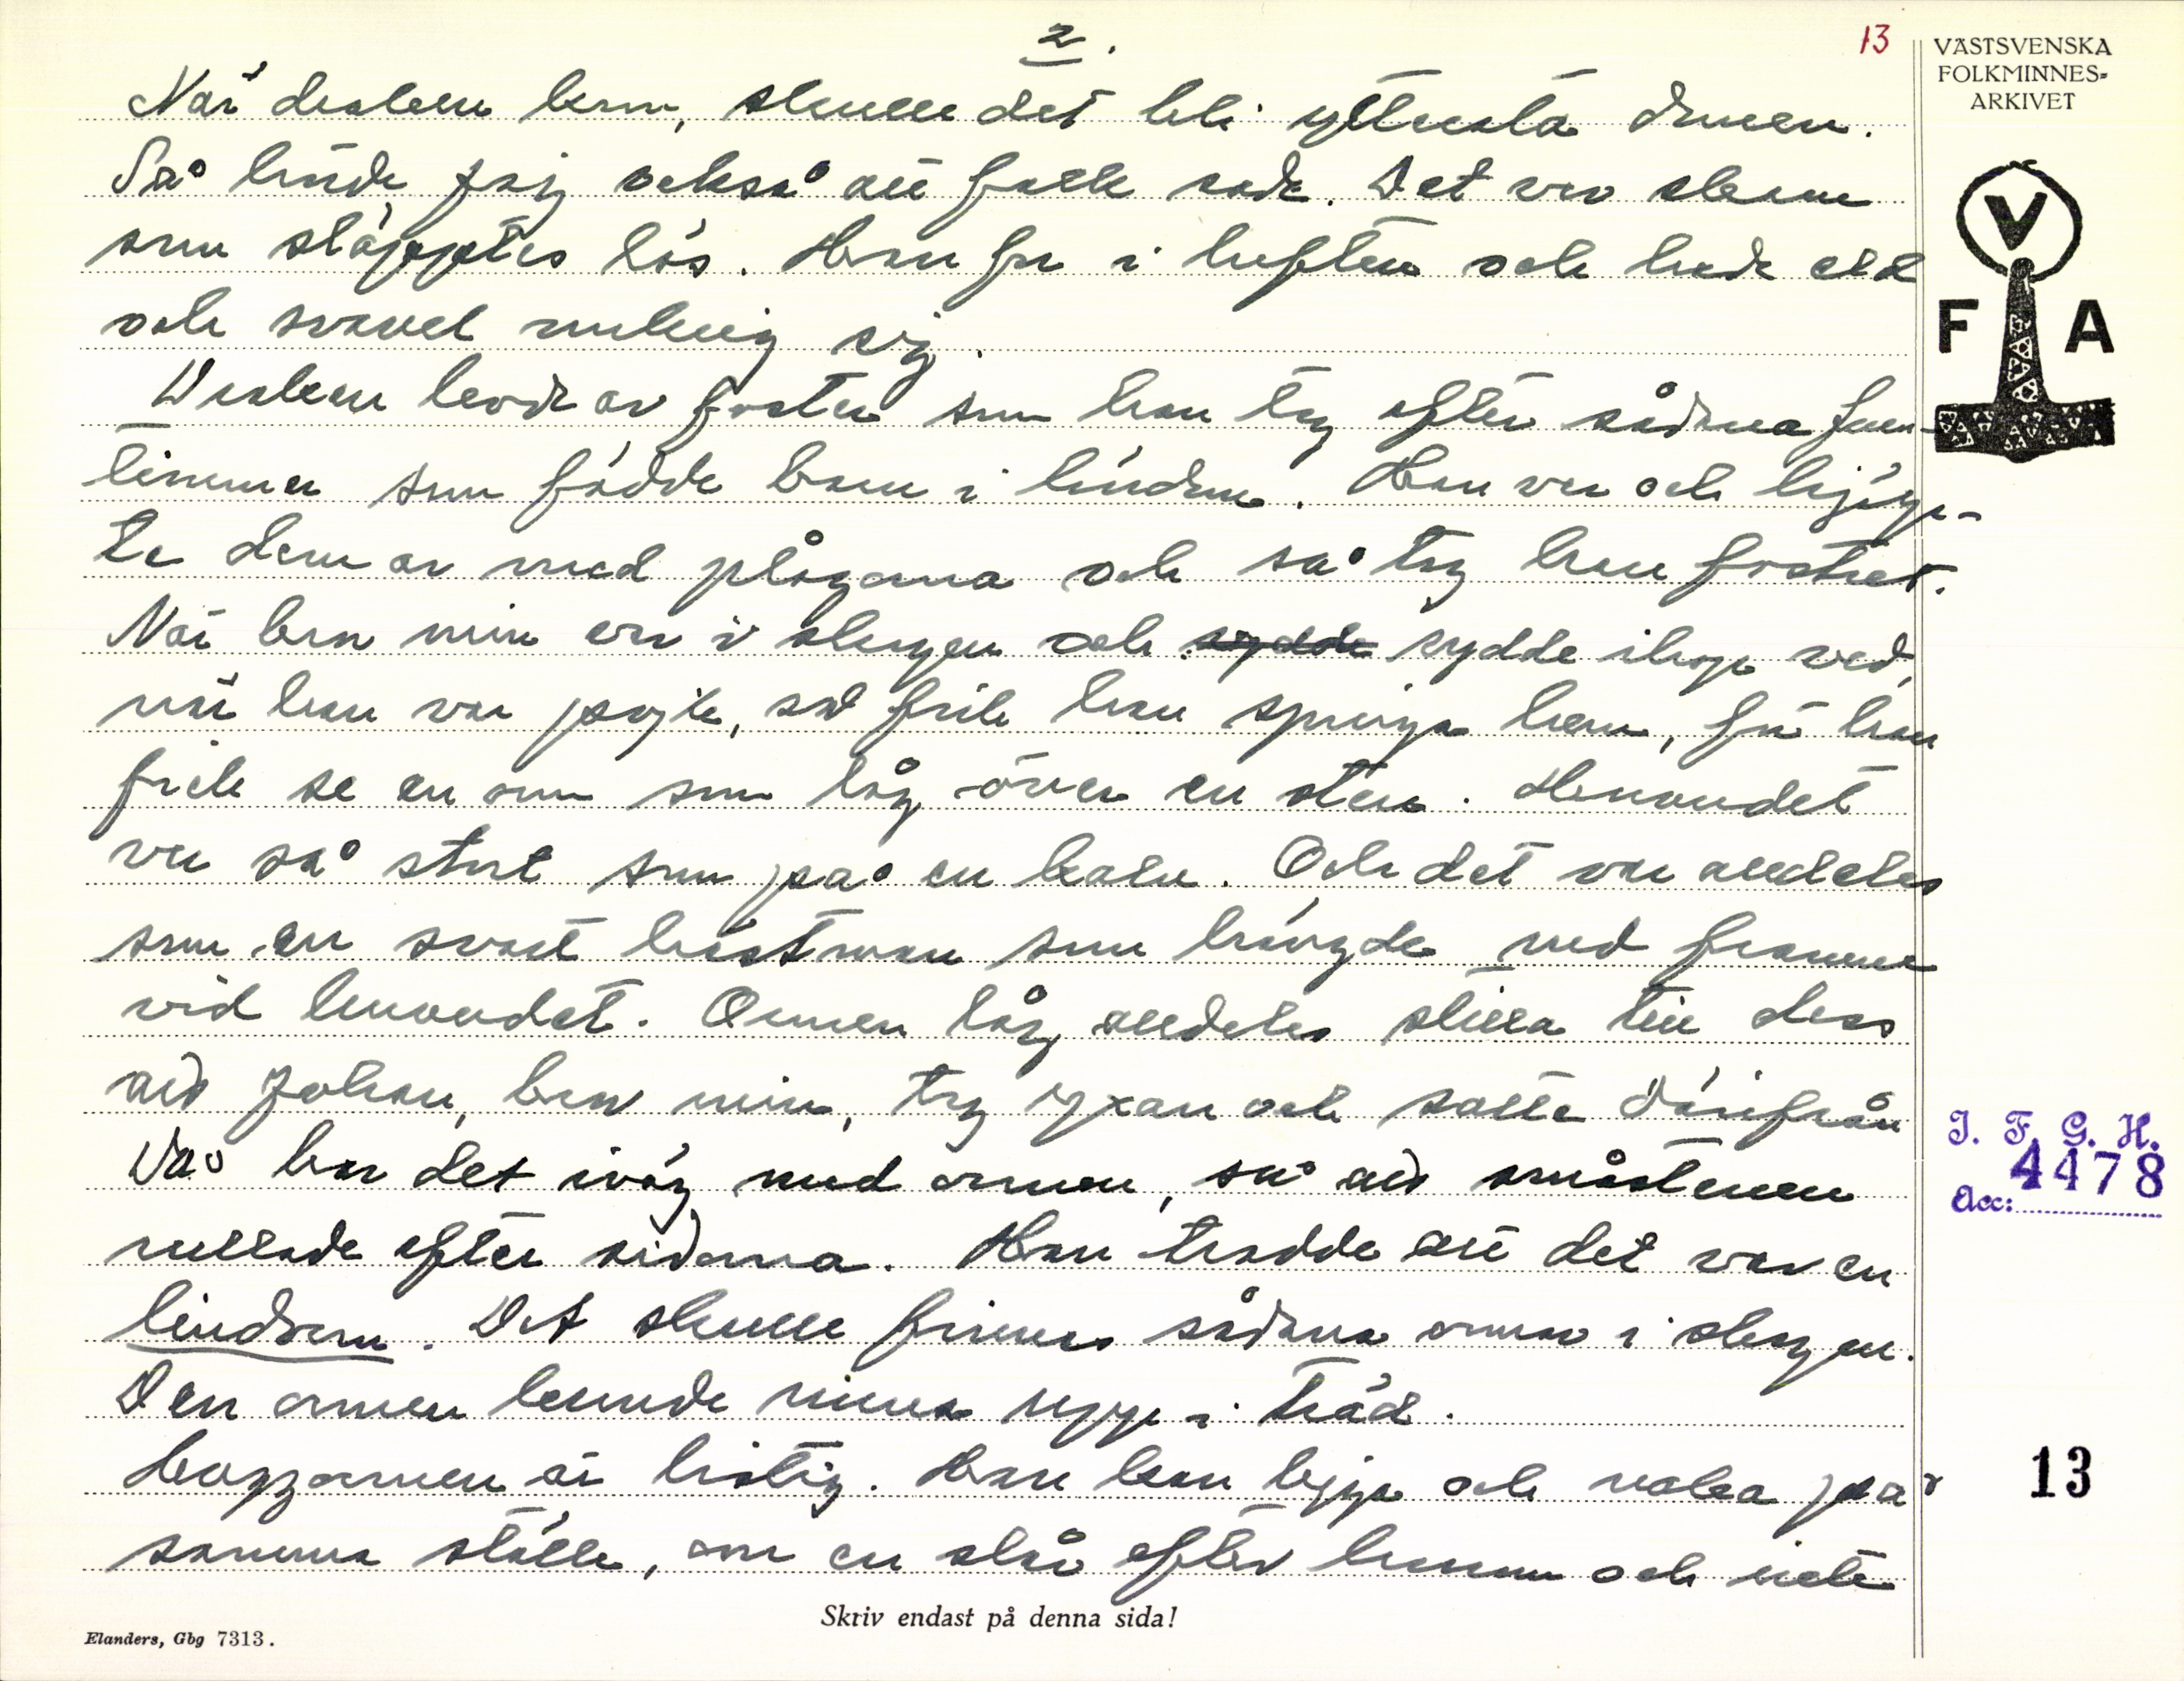 2.
13
VÄSTSVENSKA
FOLKMINNES-
ARKIVET
När draken kom, skulle det bli yttersta domen.
Så hörde jag också att folk sade. Det var skam
som släpptes lös. Han for i luften och hade eld
och svavel omkring sig.
Draken levde av foster som han tog efter sådana fruen-
timmer som födde barn i löndom. Han var och hjälp-
te dem av med plågorna och så tog han fostret.
När bror min var i skogen och sydde sydde ihop ved,
när han var pojke, så fick han springa hem, för han
fick se en orm som låg över en sten. Huvudet
var så stort som på en kalv. Och det var alldeles
som en svart hästman som hängde ned framme
vid huvudet. Ormen låg alldeles stilla till dess
att Johan, bror min, tog yxan och satte därifrån
Då bar det iväg med ormen, så att småstenen
rullade efter sidorna. Han trodde att det var en
lindorm. Det skulle finnas sådana ormar i skogen.
Den ormen kunde rinna upp i träd.
Huggormen är listig. Han kan ligga och vakta på
samma ställe, om en slår efter honom och inte
V
F A
I. F. G. H.
4478
Acc:
13
Skriv endast på denna sida!
Elanders, Gbg 7313.